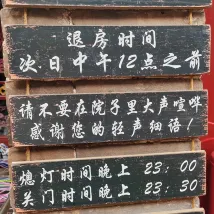 退房时间
次日中午12点之前
请不要在院子里大声喧哗
感谢您的轻声细语！
熄灯时间晚上 23：00
关门时间晚上 23：30